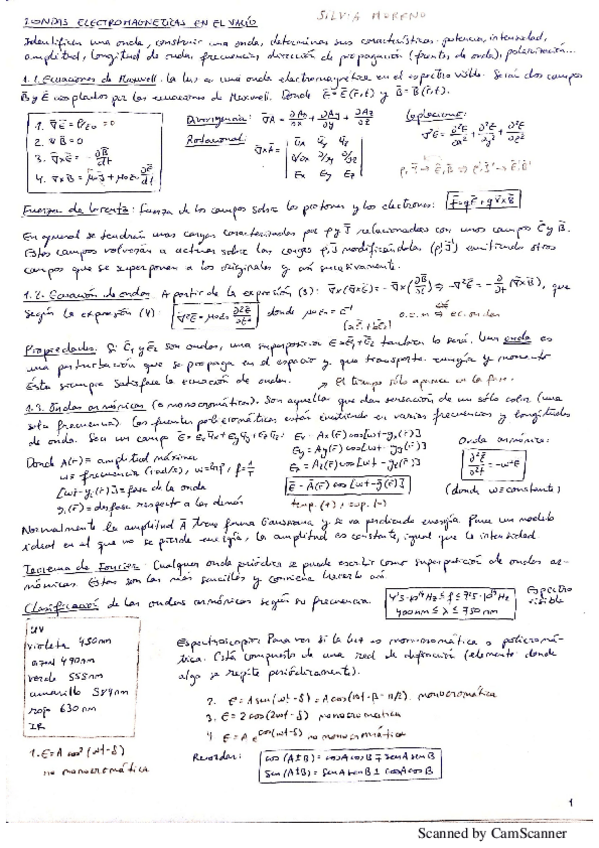 1.ONDAS ELECTROMAGNÉTICAS EN EL VACÍO
SILVIA MORENO
Identificar una onda, construir una onda, determinar sus características: potencia, intensidad,
amplitud, longitud de onda, frecuencia, dirección de propagación (frentes de onda), polarización...
1.1. Ecuaciones de Maxwell. la luz es una onda electromagnética en el espectro visible. Serán dos campos
B̄ y Ē acoplados por las ecuaciones de Maxwell. Donde Ē = Ē(r̄,t) y B̄ = B̄(r̄,t).
1. ∇Ē = ρ/ε₀ = 0
2. ∇B̄ = 0
3. ∇×Ē = -∂B̄/∂t
4. ∇×B̄ = μJ̄ + με₀ ∂Ē/∂t
Divergencia: ∇A = ∂Ax/∂x + ∂Ay/∂y + ∂Az/∂z
Rotacional: ∇×Ā =
ūx ūy ūz
∂/∂x ∂/∂y ∂/∂z
Ex Ey Ez
Laplaciano:
∇²Ē = ∂²Ē/∂x² + ∂²Ē/∂y² + ∂²Ē/∂z²
ρ, J̄ → Ē, B̄ → ρ', J̄' → Ē', B̄'
Fuerza de Lorentz: Fuerza de los campos sobre los protones y los electrones: F̄ = qĒ + q v̄×B̄
En general se tendrán unas cargas caracterizadas por ρ y J̄ relacionadas con unos campos Ē y B̄.
Estos campos volverán a actuar sobre las cargas ρ, J̄ modificándolas (ρ', J̄') emitiendo otros
campos que se superponen a los originales y así sucesivamente.
1.2. Ecuación de ondas. A partir de la expresión (3): ∇×(∇×Ē) = -∇×(∂B̄/∂t) ⇒ -∇²Ē = -∂/∂t (∇×B̄), que
según la expresión (4): ∇²Ē = με₀ ∂²Ē/∂t² donde
Propiedades. Si Ē₁ y Ē₂ son ondas, una superposición Ē = Ē₁ + Ē₂ también lo será. Una onda es
una perturbación que se propaga en el espacio y que transporta energía y momento
Ésta siempre satisface la ecuación de onda.
El tiempo sólo aparece en la fase.
1.3. Ondas armónicas (o monocromáticas). Son aquellas que dan sensación de un sólo color (una
sola frecuencia). Las fuentes policromáticas están emitiendo en varias frecuencias y longitudes
de onda. Sea un campo Ē = Exūx + Eyūy + Ezūz:
Ex = Ax(r̄)cos[ωt - gx(r̄)]
Ey = Ay(r̄)cos[ωt - gy(r̄)]
Ez = Az(r̄)cos[ωt - gz(r̄)]
Ē = Ā(r̄)cos[ωt - ḡ(r̄)]
temp. (+), esp. (-)
Donde A(r̄) = amplitud máxima
ω = frecuencia (rad/s), ω = 2πf, f = 1/T
[ωt - gi(r̄)] = fase de la onda
gi(r̄) = desfase respecto a los demás
Onda armónica:
∂²Ē/∂t² = -ω²Ē
(donde ω = constante)
Normalmente la amplitud Ā tiene forma Gaussiana y se va perdiendo energía. Para un modelo
ideal en el que no se pierde energía, la amplitud es constante, igual que la intensidad
Teorema de Fourier. Cualquier onda periódica se puede escribir como superposición de ondas ar-
mónicas. Éstas son las más sencillas y conviene hacerlo así.
Clasificación de las ondas armónicas según su frecuencia.
4'3·10¹⁴Hz ≤ f ≤ 7'5·10¹⁴Hz
400nm ≤ λ ≤ 750nm
Espectro
visible
UV
violeta 450nm
azul 490nm
verde 555nm
amarillo 589nm
rojo 630nm
IR
Espectroscopio: Para ver si la luz es monocromática o policromá-
tica. Está compuesto de una red de difracción (elemento donde
algo se repite periódicamente).
1. E = A cos²(ωt-δ)
no monocromática
2. E = A sen(ωt-δ) = A cos(ωt-δ-π/2) monocromática
3. E = 2cos(2ωt-δ) monocromática
4. E = A e^cos(ωt-δ) no monocromática
Recordar:
cos(A±B) = cosAcosB ∓ senAsenB
sen(A±B) = senAcosB ± cosAsenB
1
Scanned by CamScanner